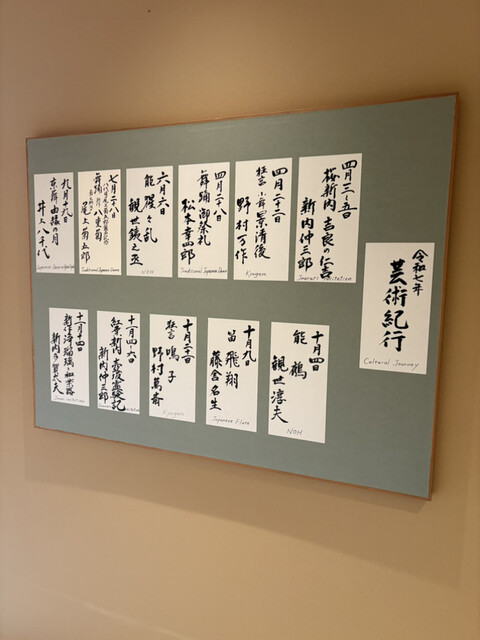 令和七年
芸術紀行
Cultural Journey
四月三〜五日
桜新内 吉良の仁吉
新内仲三郎
Recitation
四月二十二日
狂言 小舞 景清後
野村万作
Kyogen
四月二十八日
舞踊 御祭礼
松本幸四郎
Traditional Japanese Dance
六月六日
能 猩々乱
観世銕之丞
NOH
七月二十八日
舞踊
尾上菊五郎
Traditional Japanese Dance
九月十九日
京舞 由縁の月
井上八千代
十月四日
能 鶴
観世淳夫
NOH
十月九日
笛 飛翔
藤舎名生
Japanese Flute
十月二十一日
狂言 鳴子
野村萬斎
Kyogen
十一月四〜六日
紅葉新内 壺坂霊験記
新内仲三郎
十一月十四日
浄瑠璃
新内多賀太夫